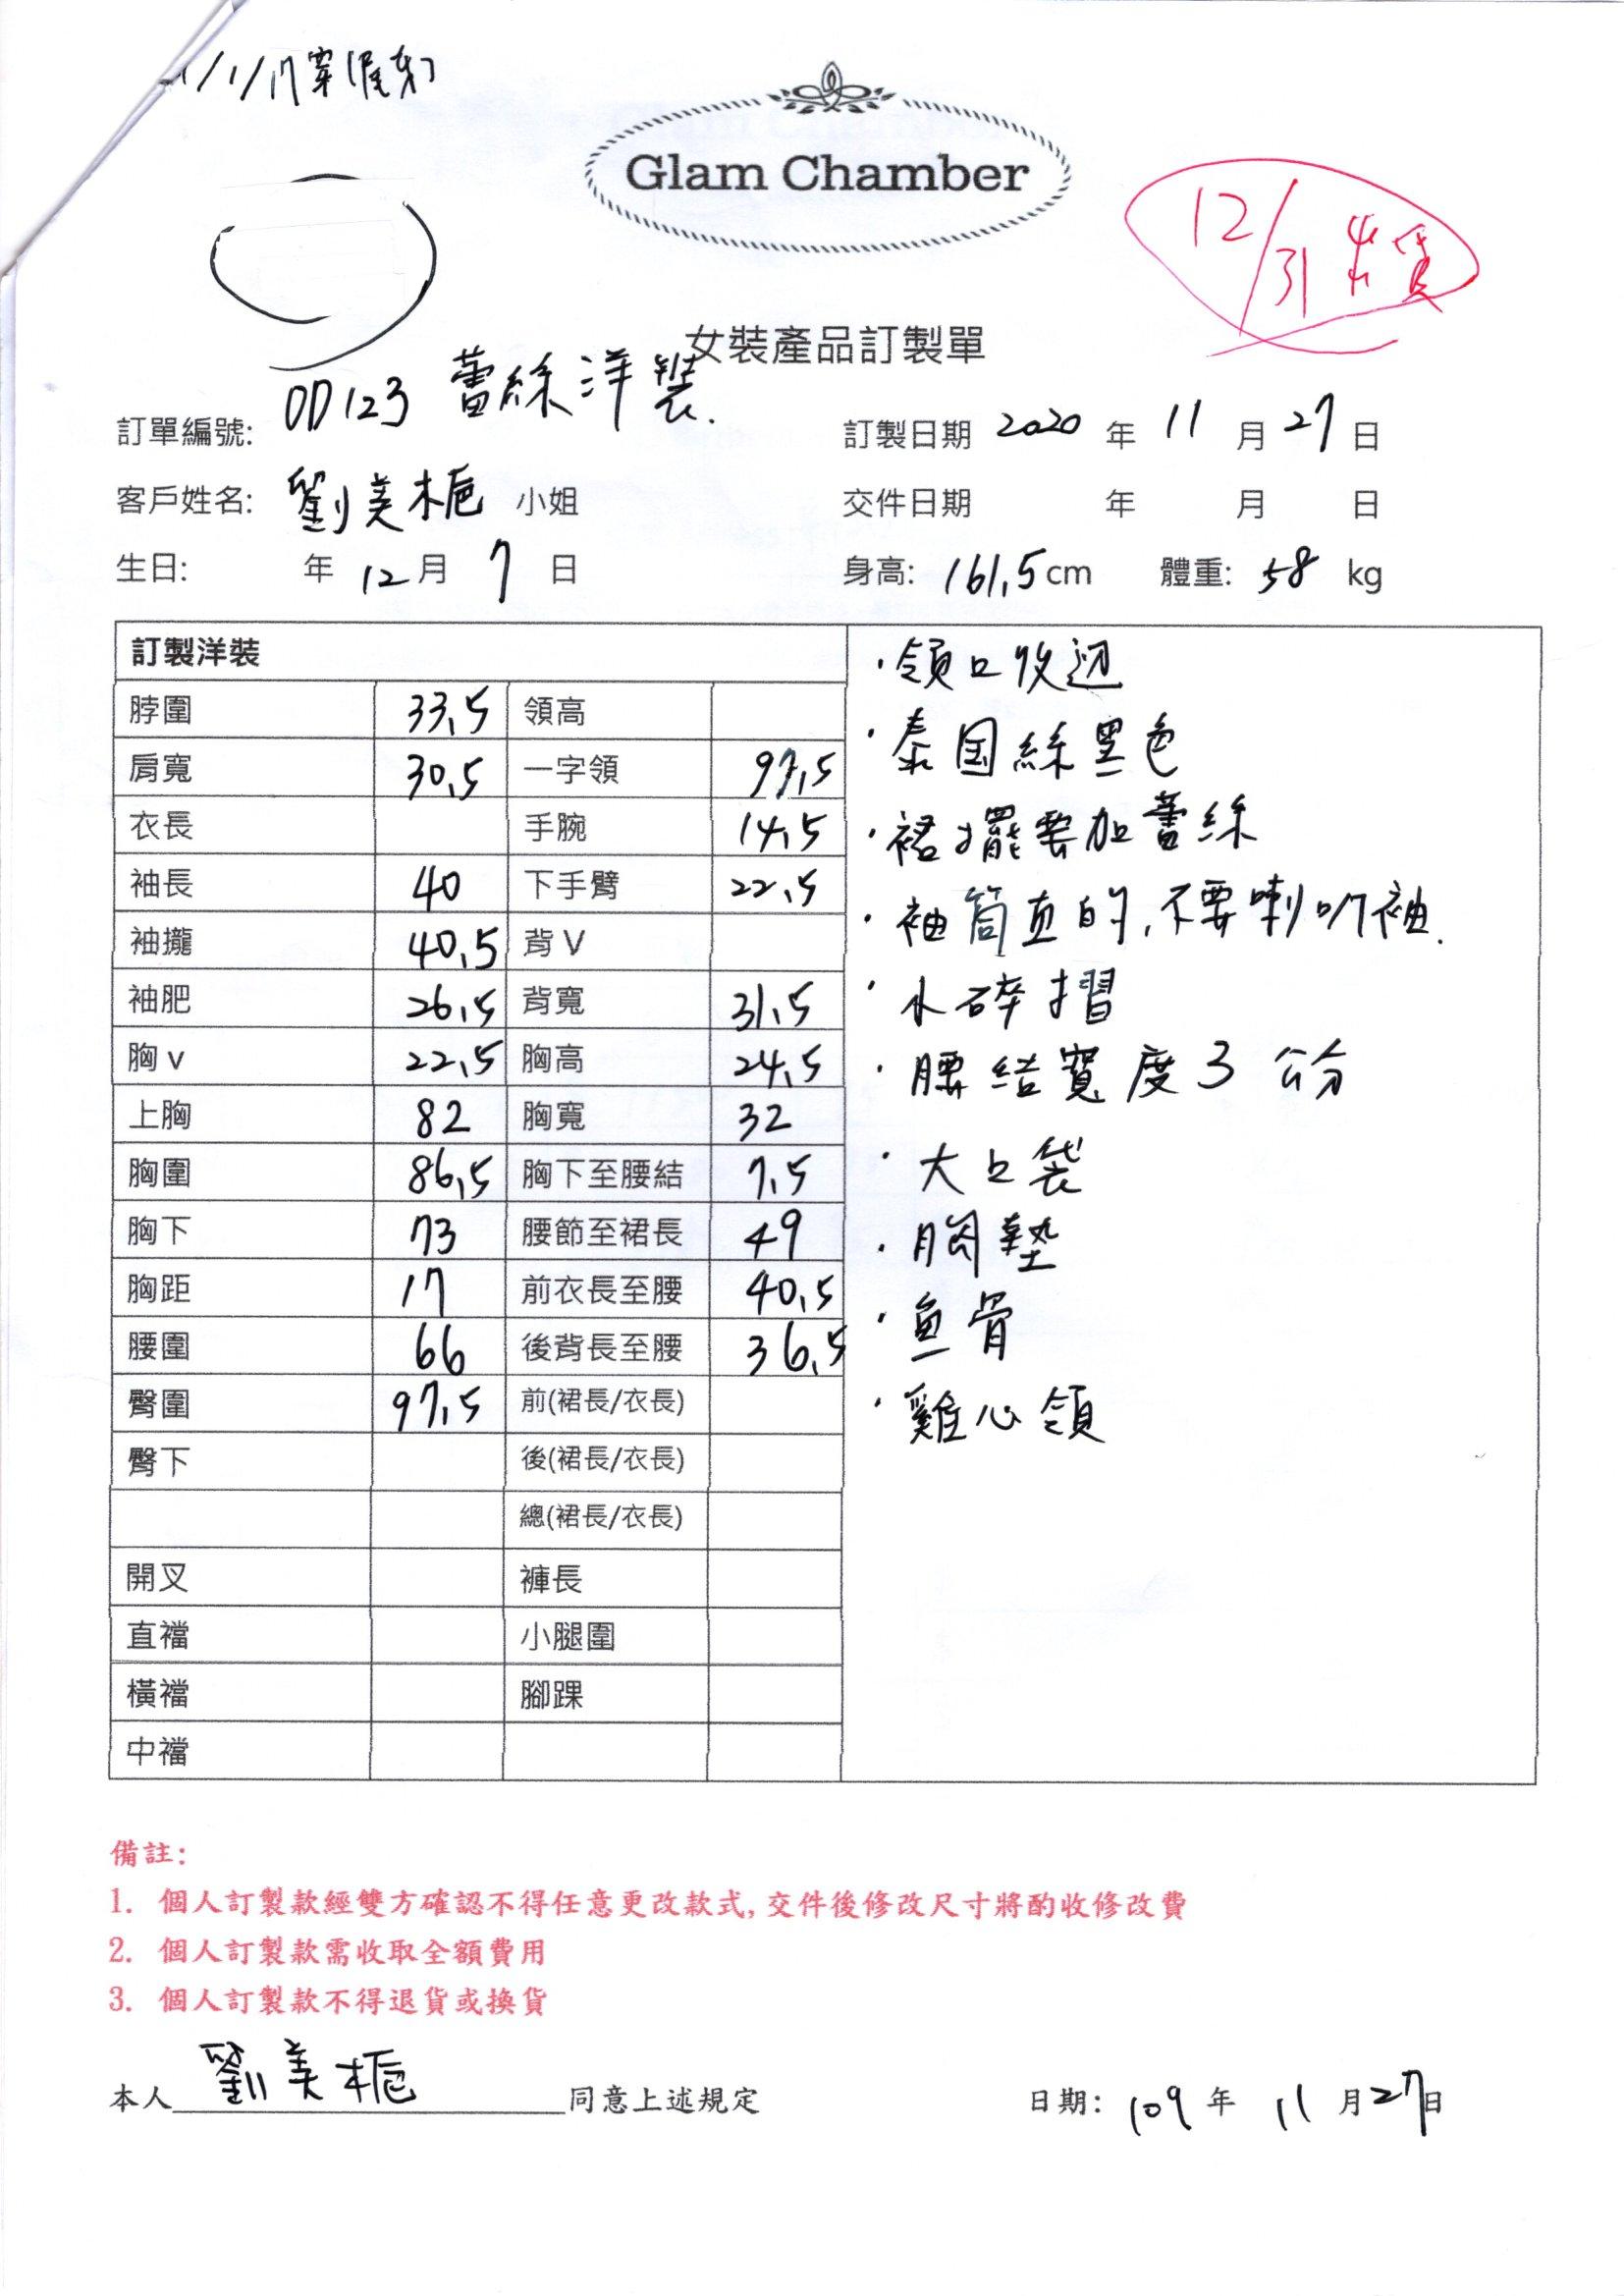 1/1/17穿(尾牙)
Glam Chamber
12/31 來賃
女裝產品訂製單
訂單編號: OD123 蕾絲洋裝.
訂製日期 2020 年 11 月 27 日
客戶姓名: 劉美梔 小姐
交件日期 年 月 日
生日: 年 12 月 7 日
身高: 161.5 cm 體重: 58 kg
訂製洋裝
脖圍 33.5 領高
肩寬 30.5 一字領 97.5
衣長 手腕 14.5
袖長 40 下手臂 22.5
袖攏 40.5 背V
袖肥 26.5 背寬 31.5
胸v 22.5 胸高 24.5
上胸 82 胸寬 32
胸圍 86.5 胸下至腰結 7.5
胸下 73 腰節至裙長 49
胸距 17 前衣長至腰 40.5
腰圍 66 後背長至腰 36.5
臀圍 97.5 前(裙長/衣長)
臀下 後(裙長/衣長)
總(裙長/衣長)
開叉 褲長
直襠 小腿圍
橫襠 腳踝
中襠
·領口收边
·泰国絲黑色
·裙擺要加蕾絲
·袖筒直的,不要喇叭袖.
·小碎摺
·腰結寬度3公分
·大口袋
·胸墊
·魚骨
·雞心領
備註:
1. 個人訂製款經雙方確認不得任意更改款式,交件後修改尺寸將酌收修改費
2. 個人訂製款需收取全額費用
3. 個人訂製款不得退貨或換貨
本人 劉美梔 同意上述規定
日期: 109 年 11 月 27 日